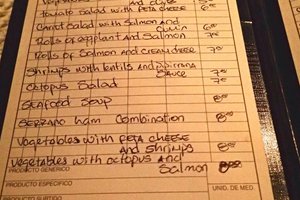 Tomato Salad with Feta cheese 6.00
Carrot Salad with Salmon and
Rolls of eggplant and Salmon 7.00
Rolls of Salmon and cream cheese 7.00
Shrimps with lentils and pipirrana
Sauce 7.00
Octopus Salad 7.00
Seafood Soup 8.00
Serrano ham Combination 8.00
Vegetables with Feta cheese
and shrimps 8.00
Vegetables with octopus and
Salmon 8.00
PRODUCTO GENERICO
PRODUCTO ESPECIFICO
UNID. DE MED.
PRODUCTO SURTIDO